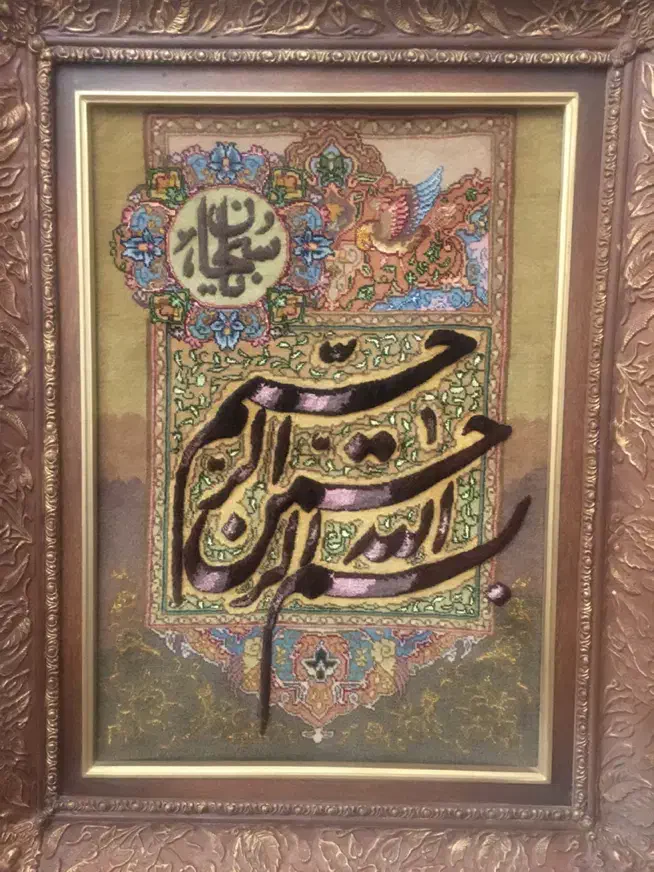 یا سبحان
بسم الله الرحمن الرحیم